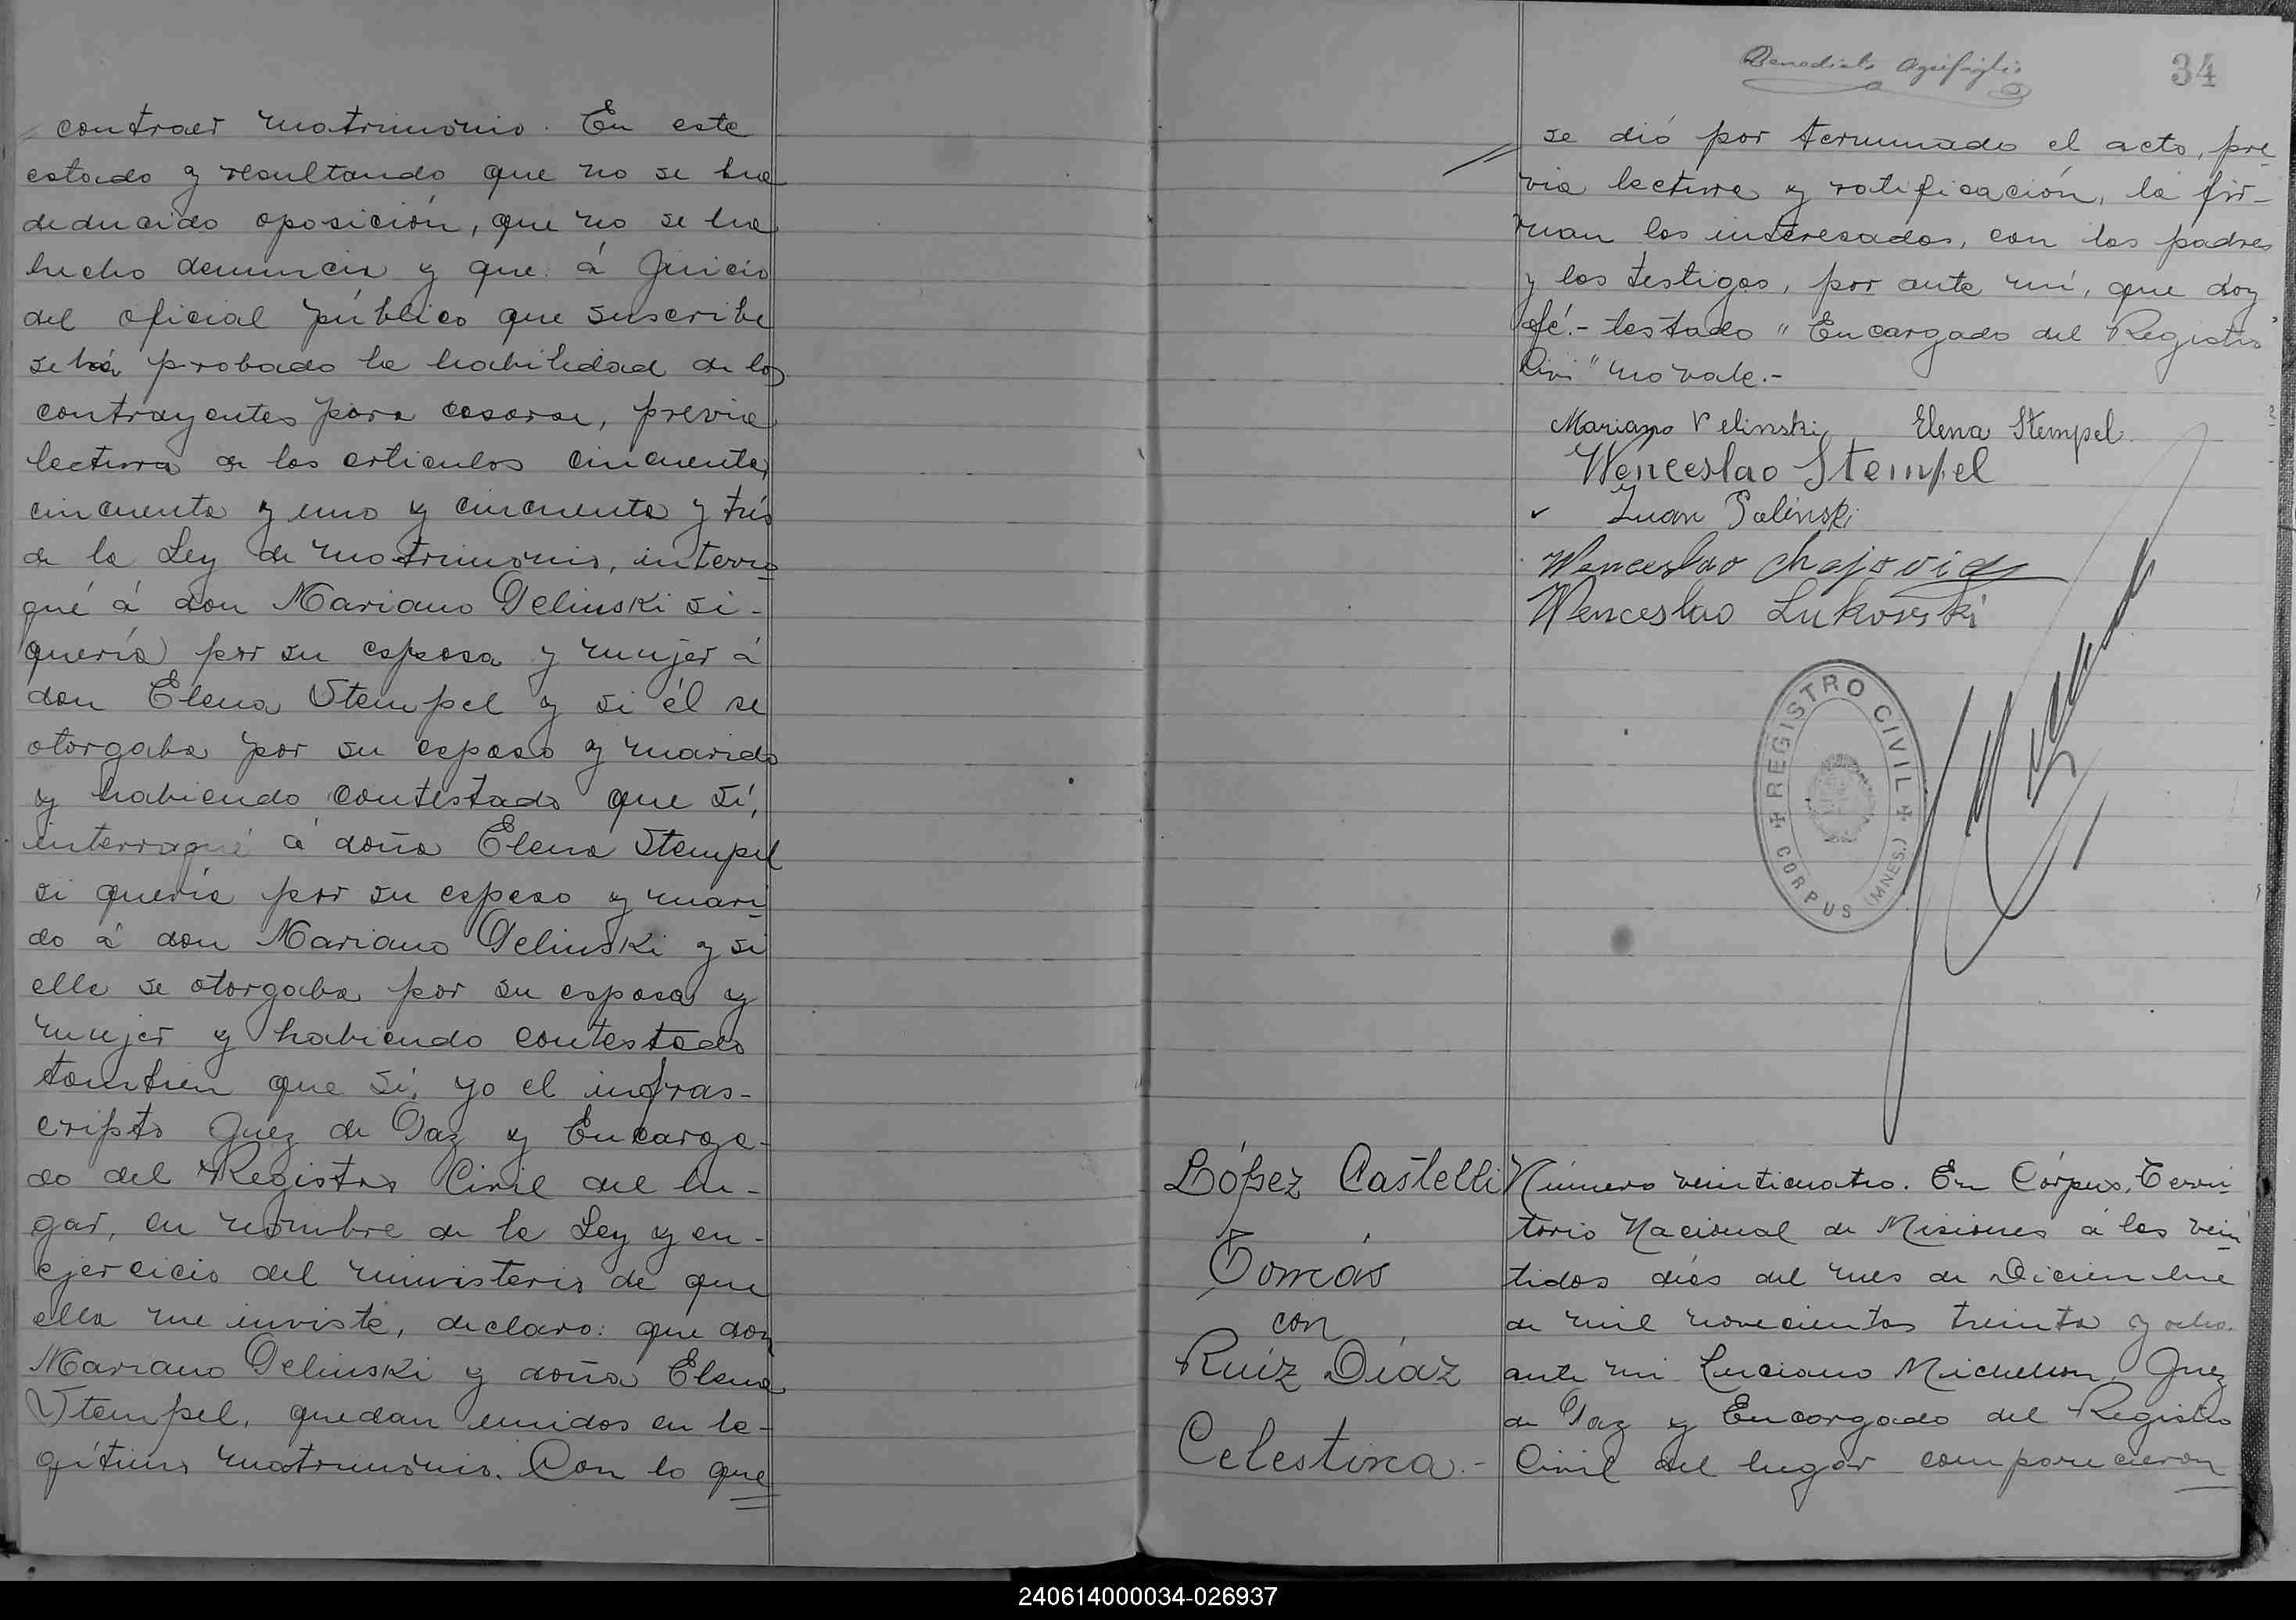 contraer matrimonio. En este
estado y resultando que no se ha
deducido oposición, que no se ha
hecho denuncia y que á Juicio
del oficial público que suscribe
se há probado la habilidad de los
contrayentes para casarse, previa
lectura de los articulos cincuenta,
cincuenta y uno y cincuenta y trés
de la Ley de matrimonio, interro
gué á don Mariano Pelinski si-
quería por su esposa y mujer á
don Elena Stempel y si él se
otorgaba por su esposo y marido
y habiendo contestado que sí,
interrogué á doña Elena Stempel
si quería por su esposo y mari
do á don Mariano Pelinski y si
ella se otorgaba por su esposa y
mujer y habiendo contestado
tambien que sí, yo el infras-
cripto Juez de Paz y Encarga-
do del Registro Civil del lu-
gar, en nombre de la Ley y en-
ejercicio del ministerio de que
ella me inviste, declaro: que don
Mariano Pelinski y doña Elena
Stempel, quedan unidos en le-
gítimo matrimonio. Con lo que
34
se dió por terminado el acto, pre
via lectura y ratificación, la fir-
man los interesados, con los padres
y los testigos, por ante mí, que doy
fé.- testado "Encargado del Registro
Civi" no vale.-
Mariano Pelinski Elena Stempel
Wenceslao Stempel
Juan Palinski
Wenceslao
Wenceslao Lukowski
REGISTRO CIVIL
CORPUS (MNES.)
López Castelli
Tomás
con
Ruíz Díaz
Celestina.-
Número veinticuatro. En Córpus, Terri-
torio Nacional de Misiones á los vein
tidos días del mes de Diciembre
de mil novecientos treinta y ocho.
ante mi Luciano Michelson, Juez
de Paz y Encargado del Registro
Civil del lugar comparecieron
240614000034-026937